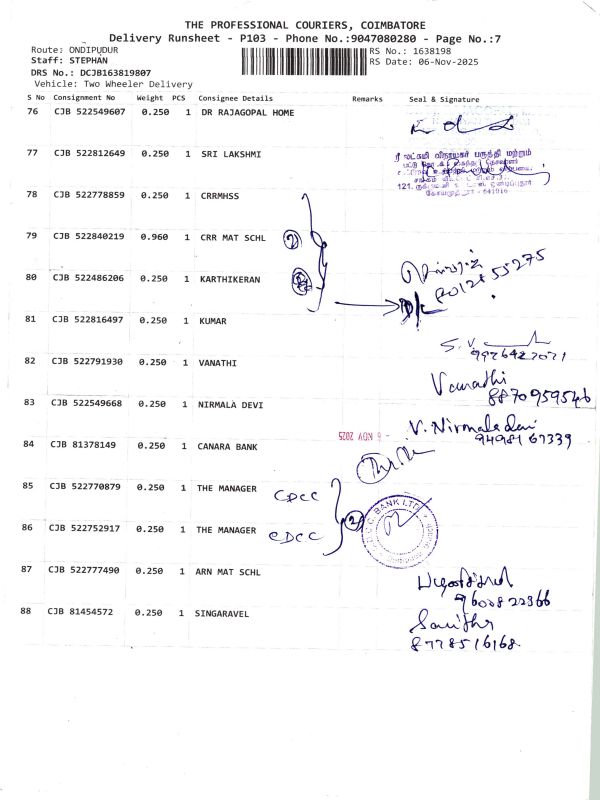 THE PROFESSIONAL COURIERS, COIMBATORE
Delivery Runsheet - P103 - Phone No.:9047080280 - Page No.:7
Route: ONDIPUDUR
RS No.: 1638198
Staff: STEPHAN
RS Date: 06-Nov-2025
DRS No.: DCJB163819807
Vehicle: Two Wheeler Delivery
S No Consignment No Weight PCS Consignee Details Remarks Seal & Signature
76 CJB 522549607 0.250 1 DR RAJAGOPAL HOME
77 CJB 522812649 0.250 1 SRI LAKSHMI
ஸ்ரீ லட்சுமி விநாயகர் பருத்தி மற்றும்
78 CJB 522778859 0.250 1 CRRMHSS
79 CJB 522840219 0.960 1 CRR MAT SCHL 2
80 CJB 522486206 0.250 1 KARTHIKERAN
8012855275
D/C
81 CJB 522816497 0.250 1 KUMAR
S.V.
82 CJB 522791930 0.250 1 VANATHI
Vanathi
8870959546
83 CJB 522549668 0.250 1 NIRMALA DEVI
V. Nirmala devi
9498167339
- 6 NOV 2025
84 CJB 81378149 0.250 1 CANARA BANK
85 CJB 522770879 0.250 1 THE MANAGER CDCC
2
86 CJB 522752917 0.250 1 THE MANAGER CDCC
C.C. BANK LTD
87 CJB 522777490 0.250 1 ARN MAT SCHL
9600822366
88 CJB 81454572 0.250 1 SINGARAVEL
Savitha
8778516168